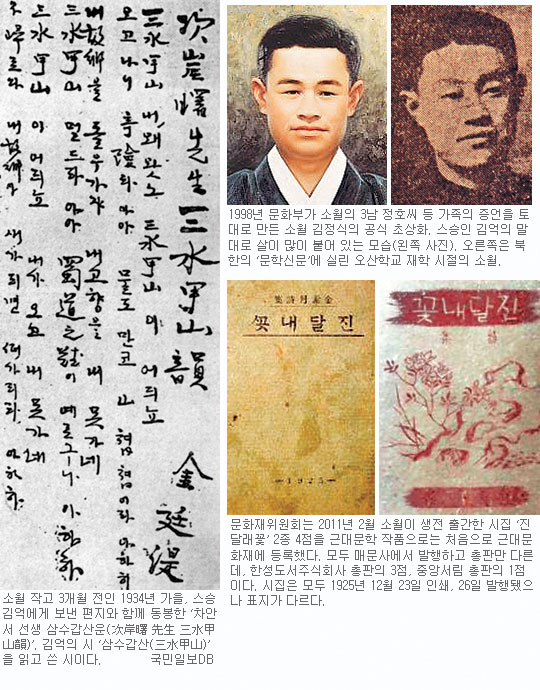 次岸曙先生三水甲山韻 金廷湜
三水甲山 내왜왓노 三水甲山이 어듸뇨
오고나니 奇險타 아하 물도 만코 山쳡쳡이라 아하하
내故鄕을 돌우가쟈 내고향을 내못가네
三水甲山 멀드라 아하 蜀道之難이 예로구나 아하하
三水甲山이 어듸뇨 내가오고 내못가네
不歸로다 내故鄕아 새가되면 떠가리라 아하하
소월 작고 3개월 전인 1934년 가을, 스승
김억에게 보낸 편지와 함께 동봉한 '차안
서 선생 삼수갑산운(次岸曙 先生 三水甲
山韻)'. 김억의 시 '삼수갑산(三水甲山)'
을 읽고 쓴 시이다. 국민일보DB
1998년 문화부가 소월의 3남 정호씨 등 가족의 증언을 토
대로 만든 소월 김정식의 공식 초상화. 스승인 김억의 말
대로 살이 많이 붙어 있는 모습(왼쪽 사진). 오른쪽은 북
한의 '문학신문'에 실린 오산학교 재학 시절의 소월.
集詩月素金
꽃내달진
—1925—
꽃내달진
문화재위원회는 2011년 2월 소월이 생전 출간한 시집 '진
달래꽃' 2종 4점을 근대문학 작품으로는 처음으로 근대문
화재에 등록했다. 모두 매문사에서 발행하고 총판만 다른
데, 한성도서주식회사 총판의 3점, 중앙서림 총판의 1점
이다. 시집은 모두 1925년 12월 23일 인쇄, 26일 발행됐으
나 표지가 다르다.